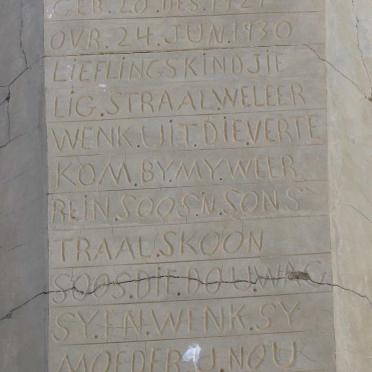 GEB. 20. DES. 1927
OVR. 24. JUN. 1930
LIEFLINGSKIND JIE
LIG. STRAAL. WELEER
WENK. UIT. DIE. VERTE
KOM. BY. MY. WEER
REIN. SOOS'N. SONS
TRAAL. SKOON
SOOS. DIE. DOU. WAG
SY. EN. WENK. SY
MOEDER. U. NOU